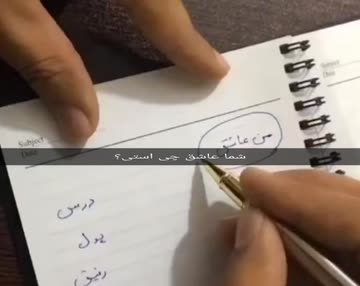 Subject
Date
من عاشق
شما عاشق چی استی؟
درس
پول
رفیق